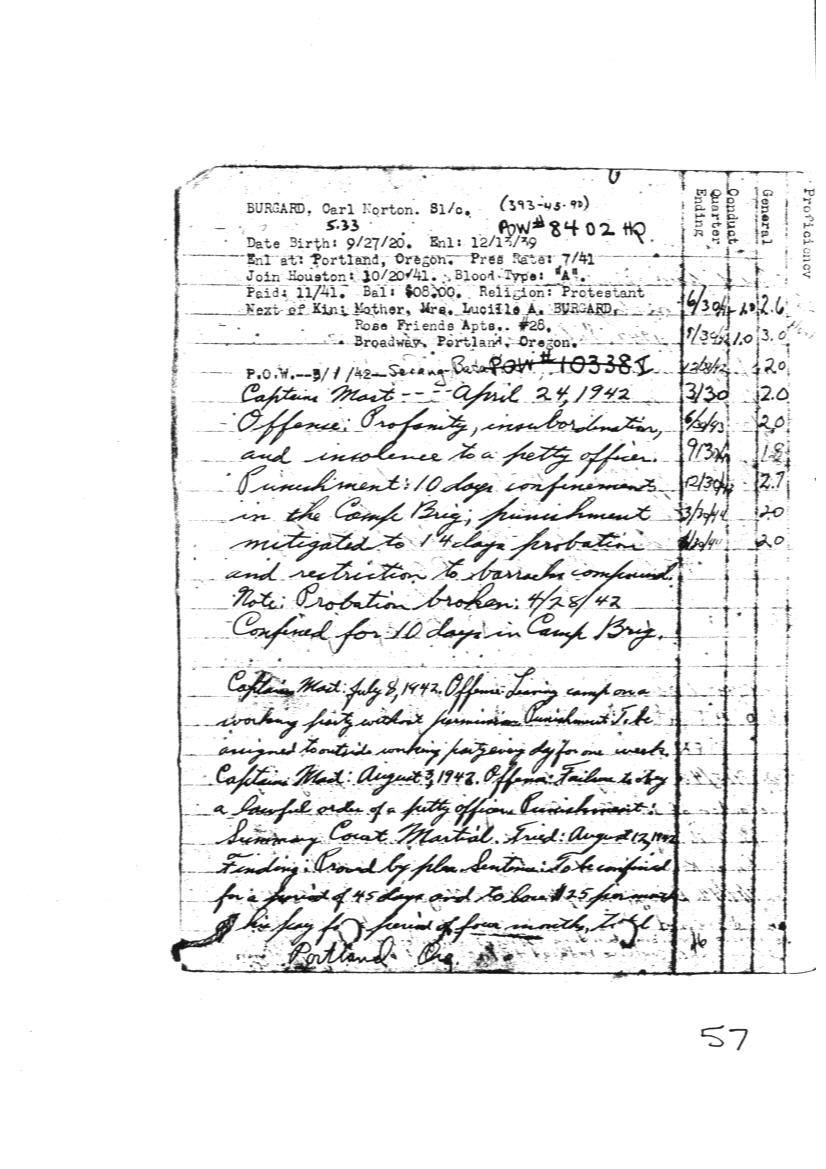 BURGARD, Carl Norton. S1/c. (393-45-90)
5.33 POW# 8402 HQ
Date Birth: 9/27/20. Enl: 12/13/39
Enl at: Portland, Oregon. Pres Rate: 7/41
Join Houston: 10/20/41. Blood Type: "A".
Paid: 11/41. Bal: $08.00. Religion: Protestant
Next of Kin: Mother, Mrs. Lucille A. BURGARD,
Rose Friends Apts.. #28.
Broadway, Portland, Oregon.
P.O.W.--3/1/42--Serang POW# 10338 I
Captains Mast -- - April 24, 1942
Offense: Profanity, insubordination,
and insolence to a petty officer.
Punishment: 10 days confinement
in the Camp Brig; punishment
mitigated to 14 days probation
and restriction to barracks compound.
Note: Probation broken: 4/28/42
Confined for 10 days in Camp Brig.
Captains Mast: July 8, 1942. Offense: Leaving camp on a
working party without permission Punishment: To be
assigned to outside working party every day for one week.
Captains Mast: August 3, 1942. Offense: Failure to obey
a lawful order of a petty officer. Punishment:
Summary Court Martial. Tried: August 12, 1942
Finding: Proved by plea. Sentence: To be confined
for a period of 45 days and to lose $25 per month
of his pay for period of four months, total
Portland Ore.
Quarter Ending
Conduct
General
Proficiency
6/30/42 2.6
1.0 3.0
2.0
3/30 2.0
6/30/43 2.0
1.8
2.7
2.0
2.0
57